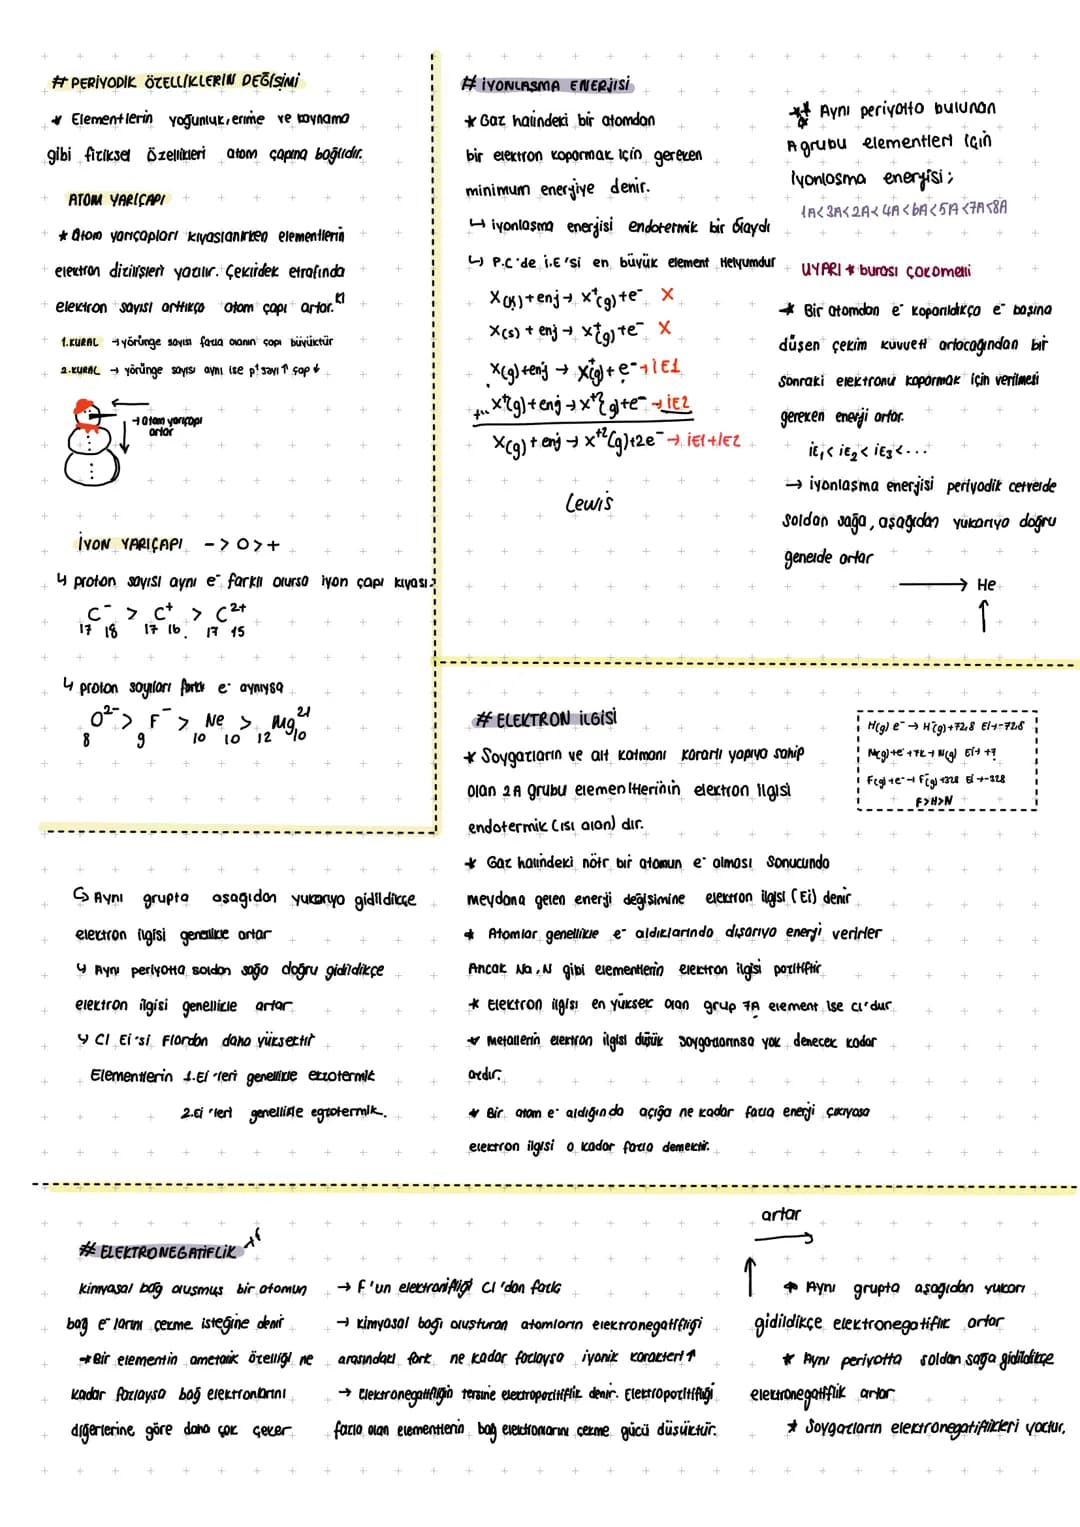 # PERİYODİK ÖZELLİKLERİN DEĞİŞİMİ
* Elementlerin yoğunluk, erime ve kaynama
gibi fiziksel özellikleri atom çapına bağlıdır.
ATOM YARIÇAPI
* Atom yarıçapları kıyaslanırken elementlerin
elektron dizilişleri yazılır. Çekirdek etrafında
elektron sayısı arttıkça atom çapı artar.
1.KURAL → yörünge sayısı fazla olanın çapı büyüktür
2.KURAL → yörünge sayısı aynı ise p⁺ sayı ↑ çap ↓
→ Atom yarıçapı
artar
İYON YARIÇAPI - > 0 > +
↳ proton sayısı aynı e⁻ farklı olursa iyon çapı kıyası:
C⁻ > C⁺ > C²⁺
17 18 17 16 17 15
↳ proton sayıları farklı e⁻ aynıysa
O²⁻ > F⁻ > Ne > Mg²⁺
8 9 10 10 12 10
# İYONLAŞMA ENERJİSİ
* Gaz halindeki bir atomdan
bir elektron koparmak için gereken
minimum enerjiye denir.
↳ iyonlaşma enerjisi endotermik bir olaydı
↳ P.C'de i.E'si en büyük element Helyumdur
X(k) + enj → X⁺(g) + e⁻ X
X(s) + enj → X⁺(g) + e⁻ X
X(g) + enj → X⁺(g) + e⁻ → İE1
+... X⁺(g) + enj → X⁺²(g) + e⁻ → İE2
X(g) + enj → X⁺²(g) + 2e⁻ → İE1+İE2
Lewis
** Aynı periyotta bulunan
A grubu elementleri için
İyonlaşma enerjisi;
1A<3A<2A<4A<6A<5A<7A<8A
UYARI * burası çokomelli
* Bir atomdan e⁻ koparıldıkça e⁻ başına
düşen çekim kuvveti artacağından bir
sonraki elektronu koparmak için verilmesi
gereken enerji artar.
İE₁ < İE₂ < İE₃ < ...
→ iyonlaşma enerjisi periyodik cetvelde
soldan sağa, aşağıdan yukarıya doğru
genelde artar
→ He
↑
# ELEKTRON İLGİSİ
* Soygazların ve alt katmanı kararlı yapıya sahip
olan 2A grubu elementlerinin elektron ilgisi
endotermik (ısı alan) dır.
* Gaz halindeki nötr bir atomun e⁻ alması sonucunda
meydana gelen enerji değişimine elektron ilgisi (Ei) denir
* Atomlar genellikle e⁻ aldıklarında dışarıya enerji verirler
Ancak Na, N gibi elementlerin elektron ilgisi pozitiftir
* Elektron ilgisi en yüksek olan grup 7A element ise Cl'dur
* Metallerin elektron ilgisi düşük soygazlarınsa yok denecek kadar
azdır.
* Bir atom e⁻ aldığında açığa ne kadar fazla enerji çıkıyosa
elektron ilgisi o kadar fazla demektir.
H(g) e⁻ → H⁻(g) + 72,8 Ei → -72,8
N(g) + e⁻ + 7k → N(g) Ei → +7
F(g) + e⁻ → F⁻(g) + 328 Ei → -328
F>H>N
↳ Aynı grupta aşağıdan yukarıya gidildikçe
elektron ilgisi genellikle artar
↳ Aynı periyotta soldan sağa doğru gidildikçe
elektron ilgisi genellikle artar
↳ Cl Ei'si Flordan daha yüksektir
Elementlerin 1.Ei'leri genellikle ekzotermik
2.Ei'leri genellikle egzotermik.
# ELEKTRONEGATİFLİK
kimyasal bağ oluşmuş bir atomun
bağ e⁻larını çekme isteğine denir
→ Bir elementin ametalik özelliği ne
kadar fazlaysa bağ elektronlarını
diğerlerine göre daha çok çeker
→ F'un elektronifliği Cl'dan fazla
→ kimyasal bağı oluşturan atomların elektronegatifliği
arasındaki fark ne kadar fazlaysa iyonik karakteri ↑
→ Elektronegatifliğin tersine elektropozitiflik denir. Elektropozitifliği
fazla olan elementlerin bağ elektronlarını çekme gücü düşüktür.
artar
→
↑
→ Aynı grupta aşağıdan yukarı
gidildikçe elektronegatiflik artar
* Aynı periyotta soldan sağa gidildikçe
elektronegatiflik artar
* Soygazların elektronegatiflikleri yoktur.